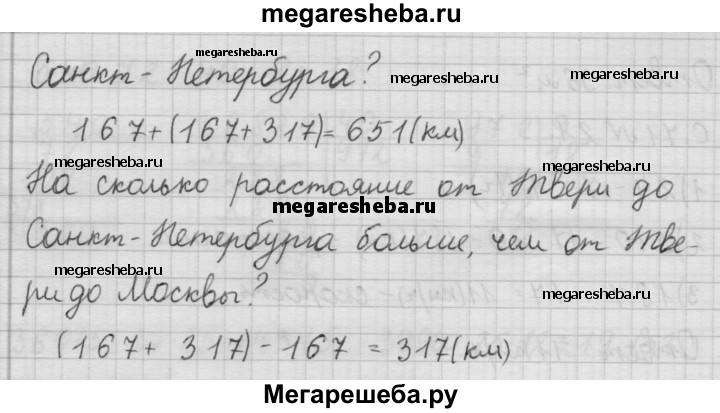 megaresheba.ru
megaresheba.ru
Санкт-Петербурга?
megaresheba.ru
megaresheba.ru
167+(167+317)=651(км)
megaresheba.ru
megaresheba.ru
На сколько расстояние от Твери до
megaresheba.ru
Санкт-Петербурга больше, чем от Тве-
megaresheba.ru
ри до Москвы?
megaresheba.ru
(167+ 317)-167 = 317(км)
Мегарешеба.ру